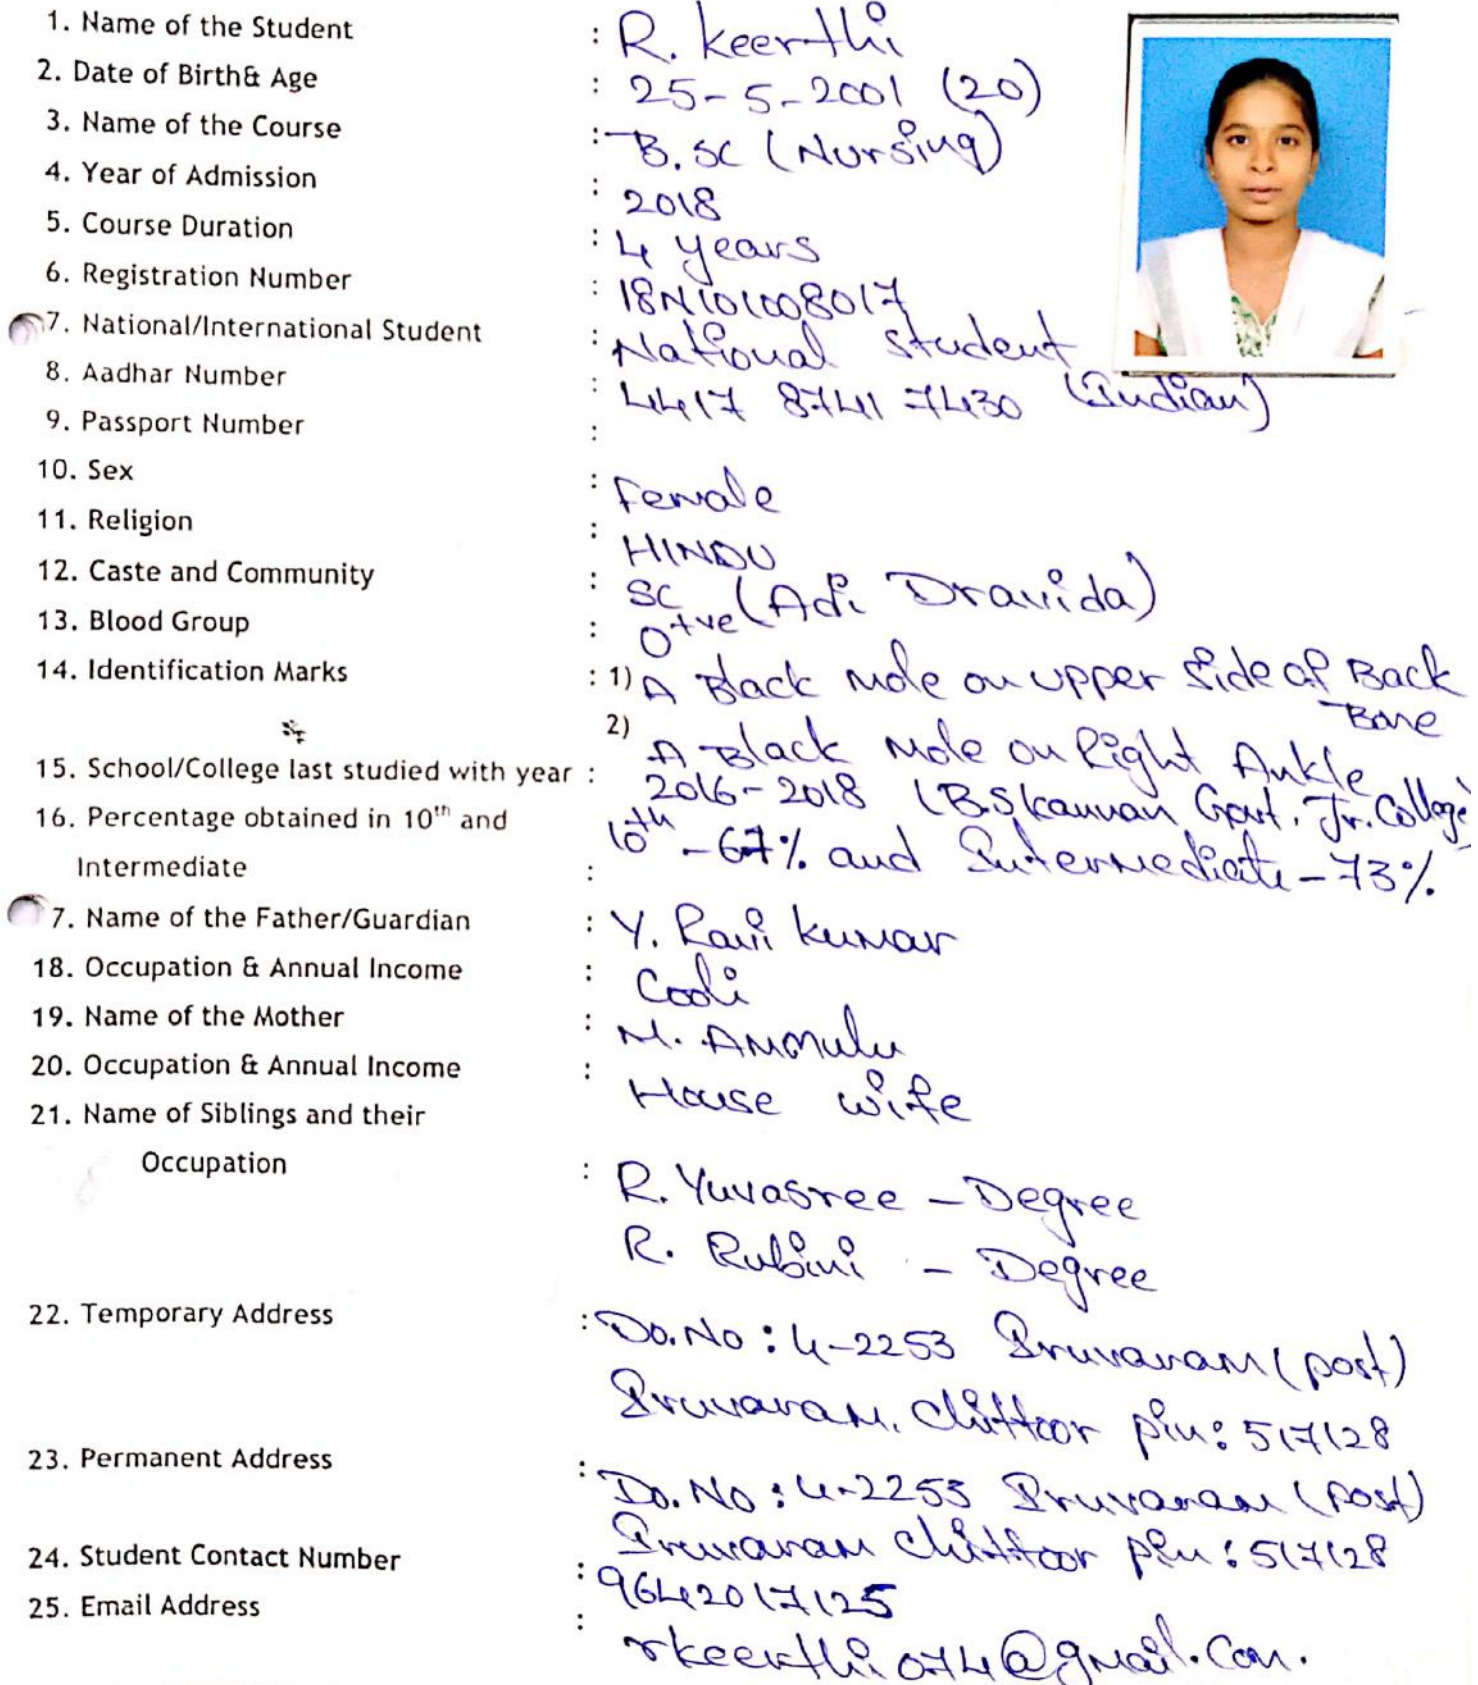 1. Name of the Student : R. Keerthi
2. Date of Birth& Age : 25-5-2001 (20)
3. Name of the Course : B.SC (Nursing)
4. Year of Admission : 2018
5. Course Duration : 4 years
6. Registration Number : 18N101008017
7. National/International Student : National Student
8. Aadhar Number : 4417 8741 7430 (Indian)
9. Passport Number :
10. Sex : Female
11. Religion : HINDU
12. Caste and Community : SC (Adi Dravida)
13. Blood Group : O+ve
14. Identification Marks : 1) A Black mole on upper side of Back Bone
2) A Black Mole on Right Ankle
15. School/College last studied with year : 2016-2018 (B.S.kannan Govt. Jr. College)
16. Percentage obtained in 10th and
Intermediate : 10th - 67% and Intermediate - 73%
7. Name of the Father/Guardian : Y. Ravi kumar
18. Occupation & Annual Income : Cooli
19. Name of the Mother : M. Ammulu
20. Occupation & Annual Income : House wife
21. Name of Siblings and their
Occupation : R. Yuvasree - Degree
R. Rubini - Degree
22. Temporary Address : Do.No : 4-2253 Iruvaram (post)
Iruvaram, Chittoor pin: 517128
23. Permanent Address : Do. No : 4-2253 Iruvaram (post)
Iruvaram Chittoor pin : 517128
24. Student Contact Number : 9642017125
25. Email Address : rkeerthi074@gmail.com.